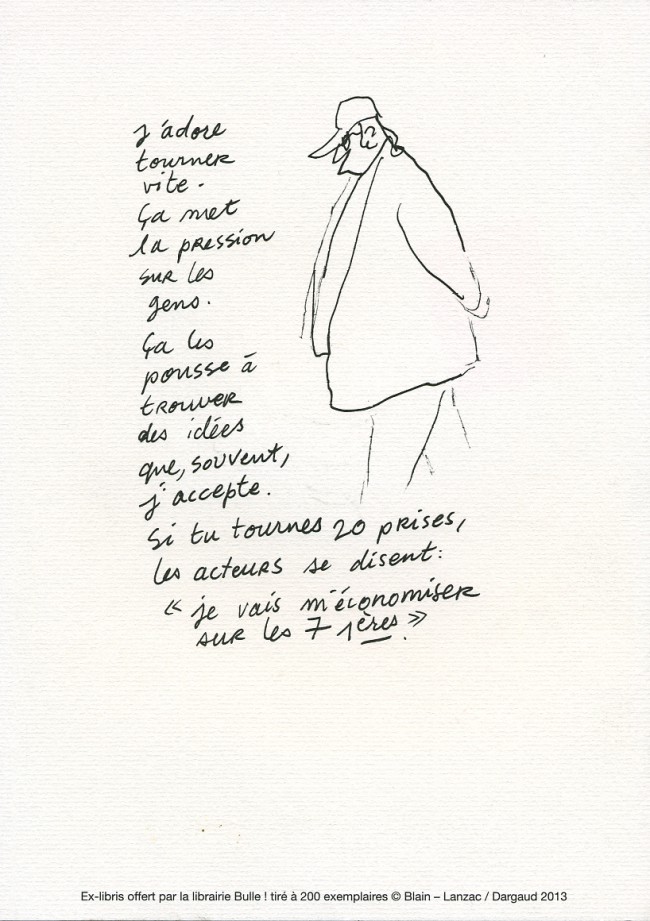 J'adore
tourner
vite.
Ça met
la pression
sur les
gens.
Ça les
pousse à
trouver
des idées
que, souvent,
j'accepte.
Si tu tournes 20 prises,
les acteurs se disent:
« je vais m'économiser
sur les 7 1ères. »
Ex-libris offert par la librairie Bulle ! tiré à 200 exemplaires © Blain – Lanzac / Dargaud 2013